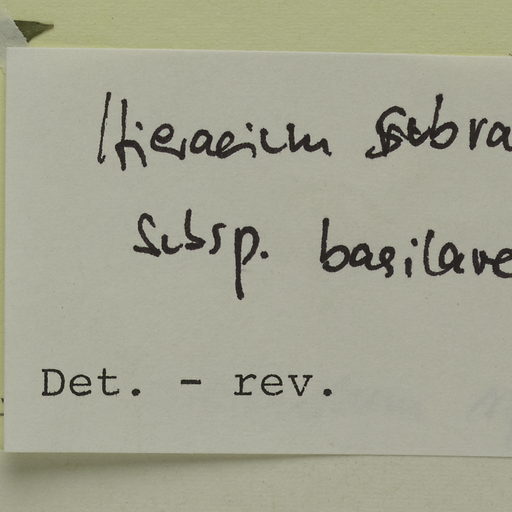 Hieracium subra
subsp. basilare
Det. - rev.